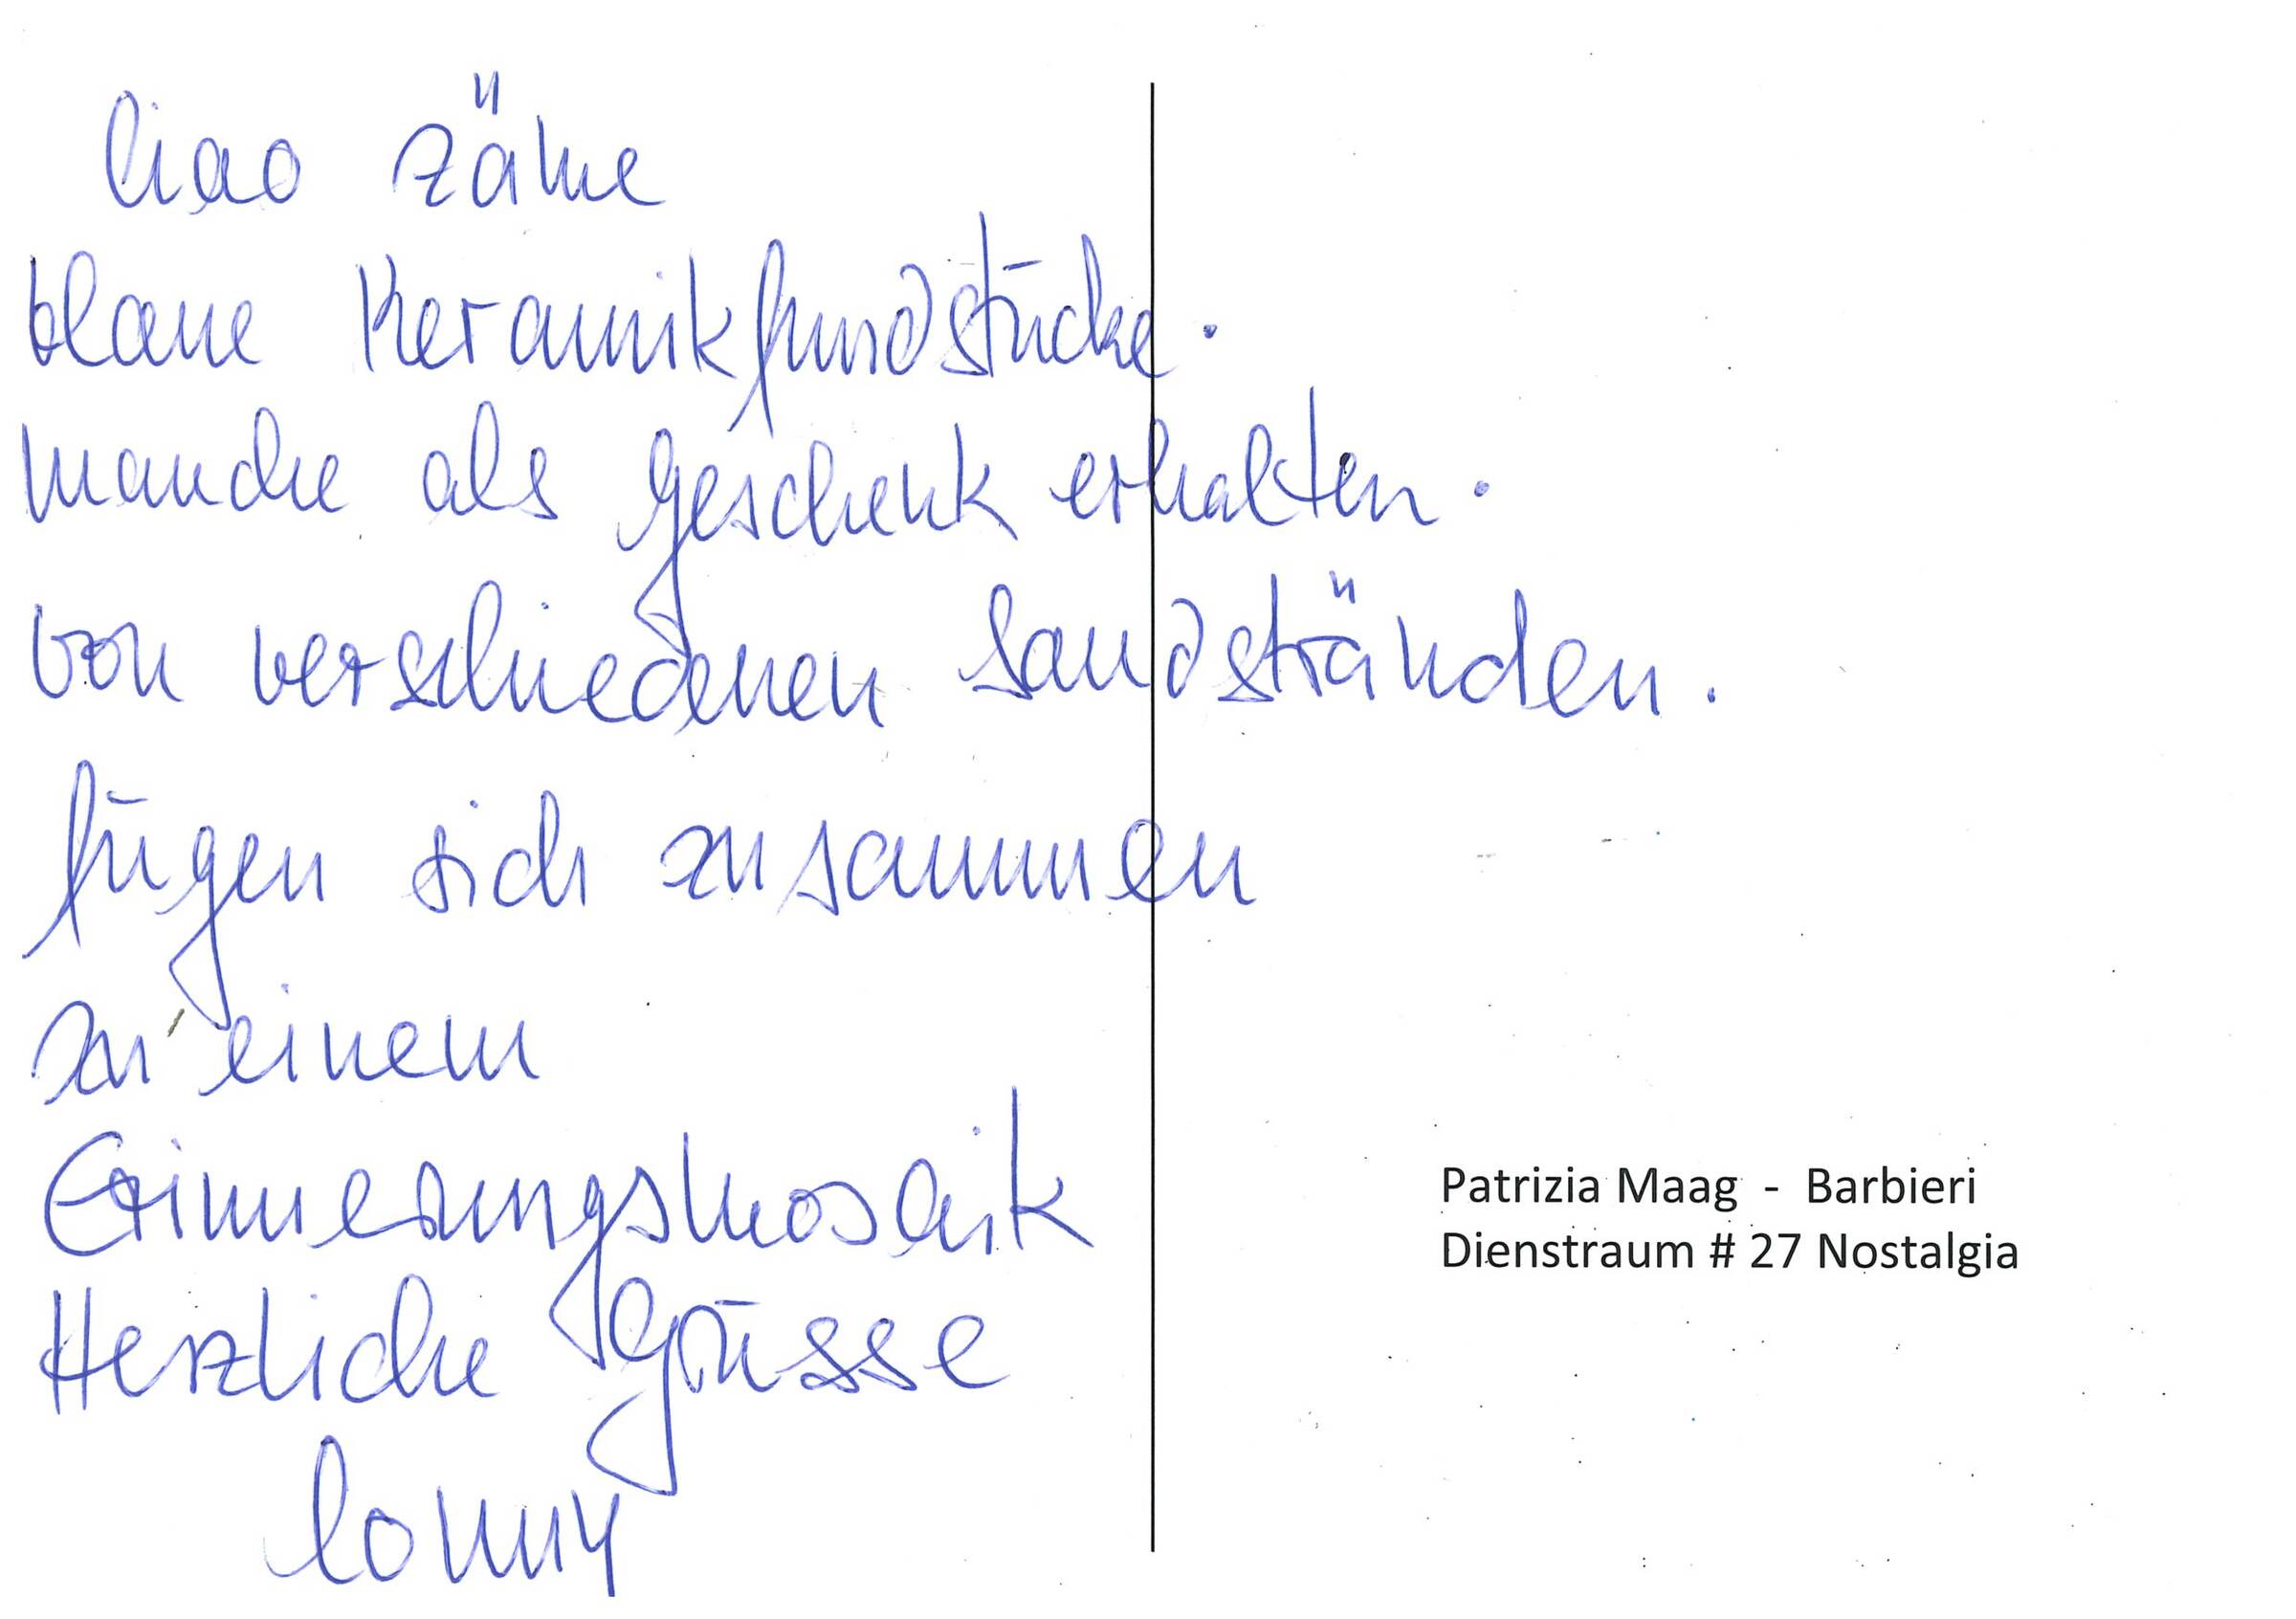 Ciao zäme
blaue Keramikfundstücke.
manche als Geschenk erhalten.
von verschiedenen Sandstränden.
fügen sich zusammen
zu einem
Erinnerungsmosaik
Herzliche Grüsse
Conny
Patrizia Maag - Barbieri
Dienstraum # 27 Nostalgia